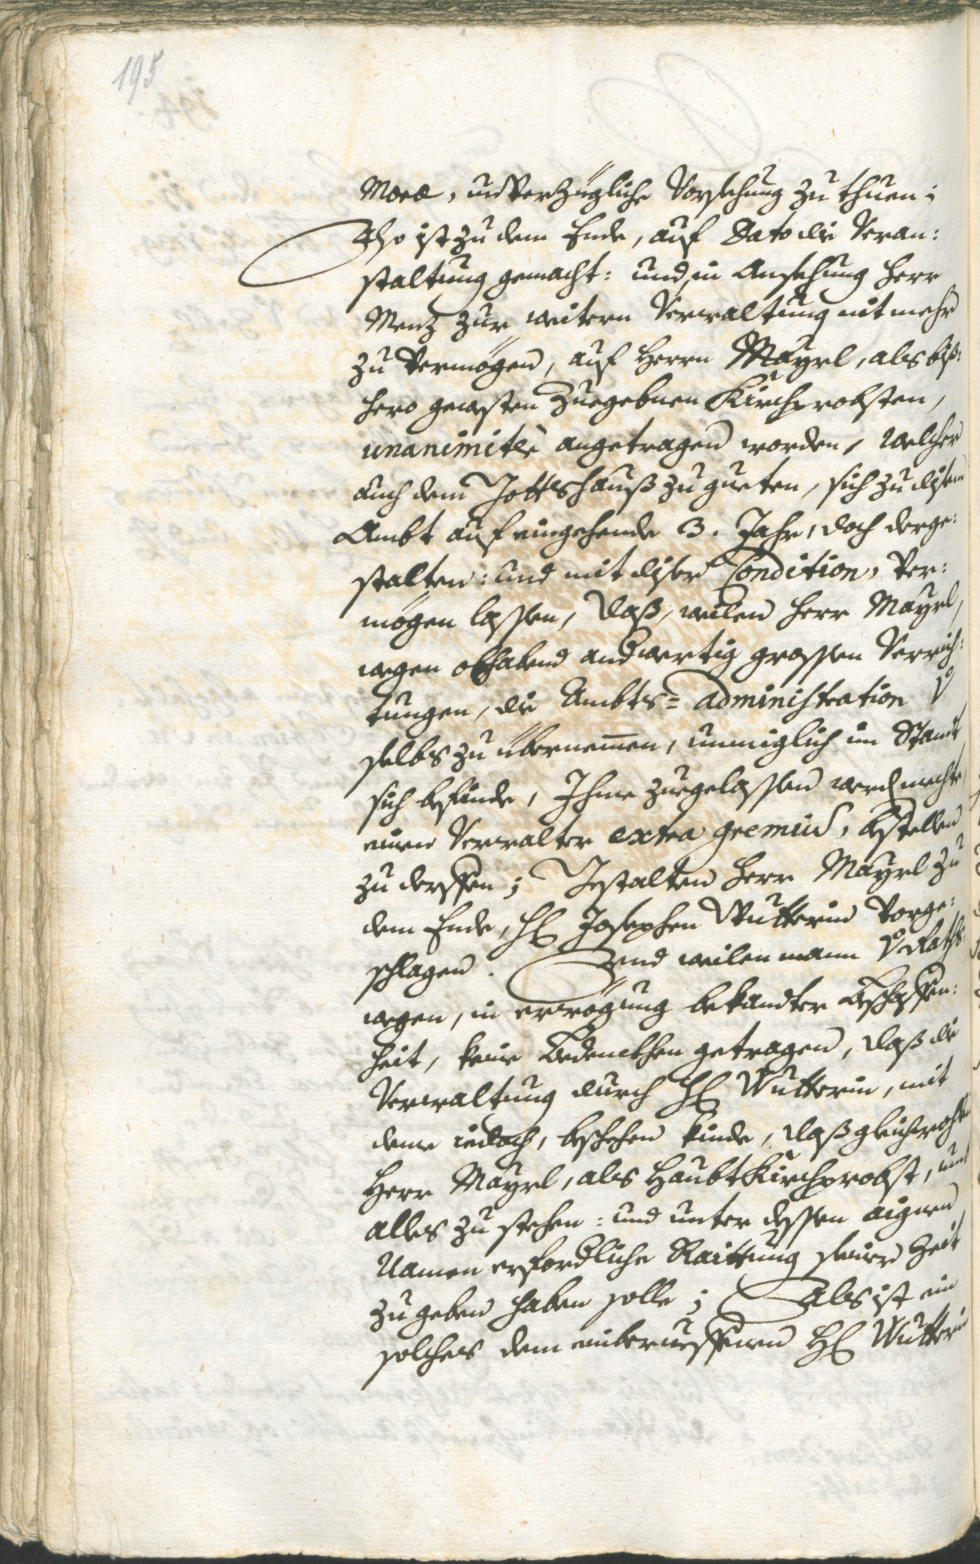 195
Mora, unverzügliche Vorsehung zu thuen;
Also ist zu dem Ende, auf Dato die Veran:
staltung gemacht: und in Ansehung Herr
Menz zur weitern Verwaltung nit mehr
zu vermögen, auf Herrn Mayrl, als biß:
hero gewesten Zuegebnen Kirchprobsten,
unanimitèr angetragen worden, welcher
auch dem Gottshauß zu gueten, sich zu disem
Ambt auf eingehende 3. Jahr, doch derge:
stalten: und mit diser Condition, ver:
mögen lassen, daß, weilen Herr Mayrl,
wegen obhabend andwertig grossen Verrich:
tungen, die Ambts= administration
selbs zu übernemen, unmiglich im Stande
sich befinde, Ihme zuegelassen werden mechte,
einen Verwalter extra gremium, bestellen
zu derffen; Gestalten Herr Mayrl zu
dem Ende, H. Josephen Wutterin vorge:
schlagen. Und weilen mann Raths
wegen, in erwögung bekandter Beschaffen:
heit, keine Bedenckhen getragen, daß die
Verwaltung durch H. Wutterin, mit
deme iedoch, beschehen kinde, daß gleichwohl
Herr Mayrl, als Haubt Kirchprobst, umb
alles zu stehen: und unter dessen aignen
Namen erforderliche Raittung seiner Zeit
zu geben haben solle; Als ist ein
solches dem einberueffenen H. Wutterin